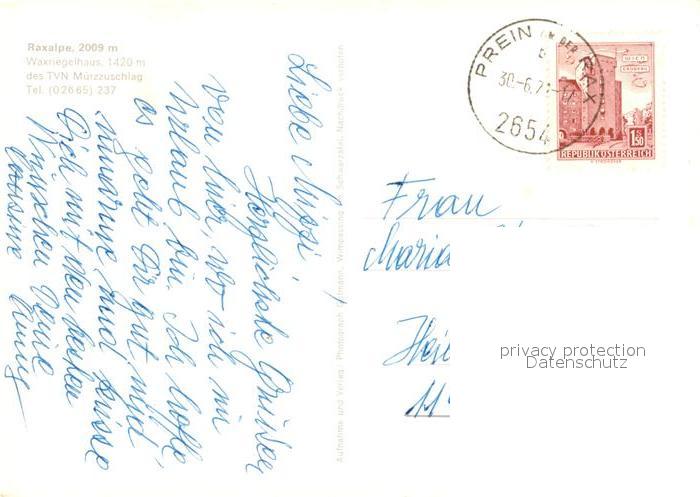 Raxalpe, 2009 m
Waxriegelhaus, 1420 m
des TVN Mürzzuschlag
Tel. (0 26 65) 237
Liebe Mizzi!
Herzlichste Grüße
von hier, wo ich im
Urlaub bin. Ich hoffe
es geht Dir gut und
umarme und küsse
Dich mit den besten
Wünschen Deine
Cousine
Aufnahme und Verlag: Photograph Wimpassing Schwarzatal, Nachdruck verboten
PREIN AN DER RAX
30.-6.71-17
2654
WIEN
ERDBERG
1.50
REPUBLIK ÖSTERREICH
Frau
Maria
privacy protection
Datenschutz